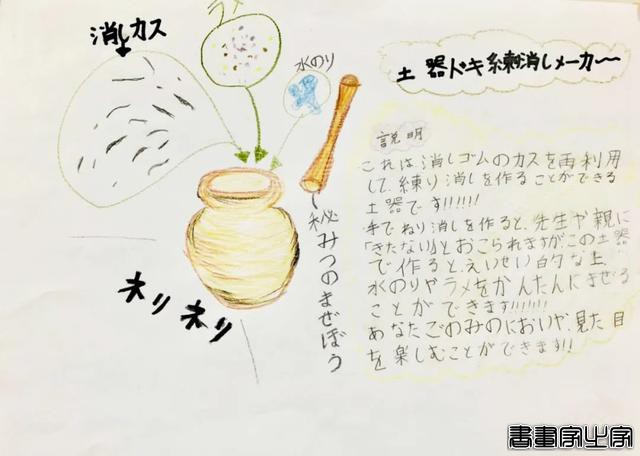 ラメ
消しカス
水のり
秘みつのまぜぼう
ネリネリ
土器ドキ練消しメーカー
説明
これは消しゴムのカスを再利用
して、練り消しを作ることができる
土器です!!!!!!
手でねり消しを作ると、先生や親に
「きたない」とおこられますがこの土器
で作ると、えいせい的な上、
水のりやラメをかんたんにまぜる
ことができます!!!!!!!
あなたごのみのにおいや、見た目
を楽しむことができます!!
書畫家ㄓ字